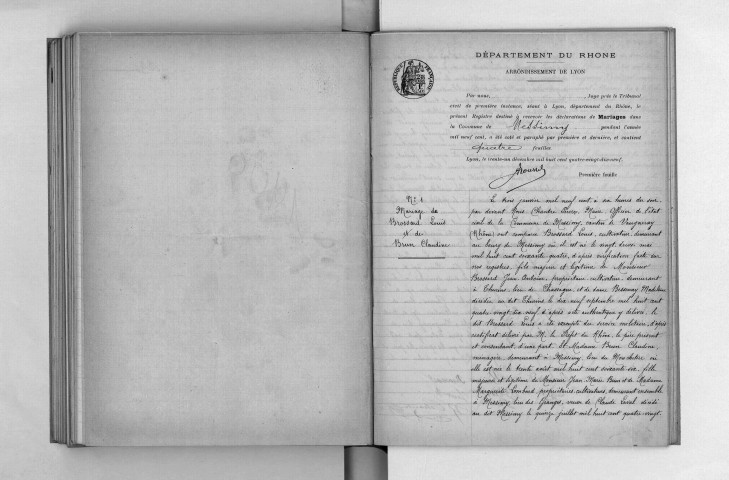 DÉPARTEMENT DU RHONE
ARRONDISSEMENT DE LYON
RÉPUBLIQUE FRANÇAISE
Par nous, , Juge près le Tribunal
civil de première instance, séant à Lyon, département du Rhône, le
présent Registre destiné à recevoir les déclarations de Mariages dans
la Commune de Messimy pendant l'année
mil neuf cent, a été coté et paraphé par première et dernière, et contient
quatre feuilles.
Lyon, le trente-un décembre mil huit cent quatre-vingt-dix-neuf.
Première feuille
N° 1
Mariage de
Brossard Louis
et de
Brun Claudine
Le trois janvier mil neuf cent, à six heures du soir
par devant Nous Maire Officier de l'état
civil de la Commune de Messimy, canton de Vaugneray
(Rhône) ont comparu Brossard Louis, cultivateur, demeurant
au bourg de Messimy où il est né le vingt deux mai
mil huit cent soixante quatre, d'après vérification faite sur
nos registres, fils majeur et légitime de Monsieur
Brossard Jean Antoine, propriétaire cultivateur, demeurant
à Thurins, lieu de et de dame Madeleine
décédée au dit Thurins le dix neuf septembre mil huit cent
quatre vingt dix neuf d'après acte authentique y délivré, le
dit Brossard Louis a été exempté du service militaire, d'après
certificat délivré par M. le Préfet du Rhône, le père présent
et consentant, d'une part. Et Madame Brun Claudine
ménagère, demeurant à Messimy, lieu de où
elle est née le trente août mil huit cent soixante six, fille
majeure et légitime de Monsieur Jean Marie Brun et de Madame
Marguerite Lombard, propriétaires cultivateurs, demeurant ensemble
à Messimy, lieu des Granges, veuve de Claude décédé
au dit Messimy le quinze juillet mil huit cent quatre vingt